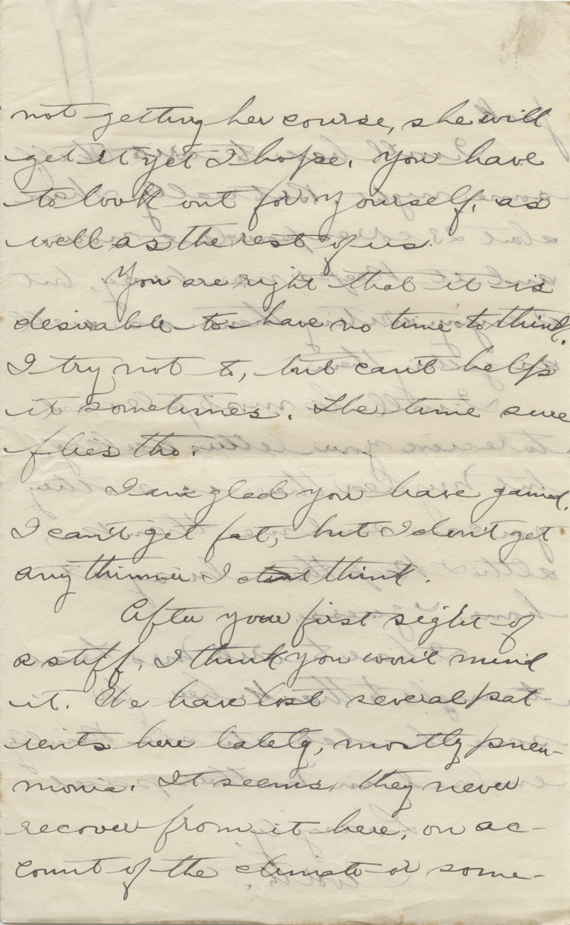 not getting her course, she will
get it yet I hope. You have
to look out for yourself, as
well as the rest of us.
You are right that it is
desirable to have no time to think.
I try not to, but can't help
it sometimes. The time sure
flies tho.
I am glad you have gained.
I can't get fat, but I don't get
any thinner I don't think.
After your first sight of
a stiff, I think you won't mind
it. We have lost several pat-
ients here lately, mostly pneu-
monia. It seems, they never
recover from it here, on ac-
count of the climate or some-